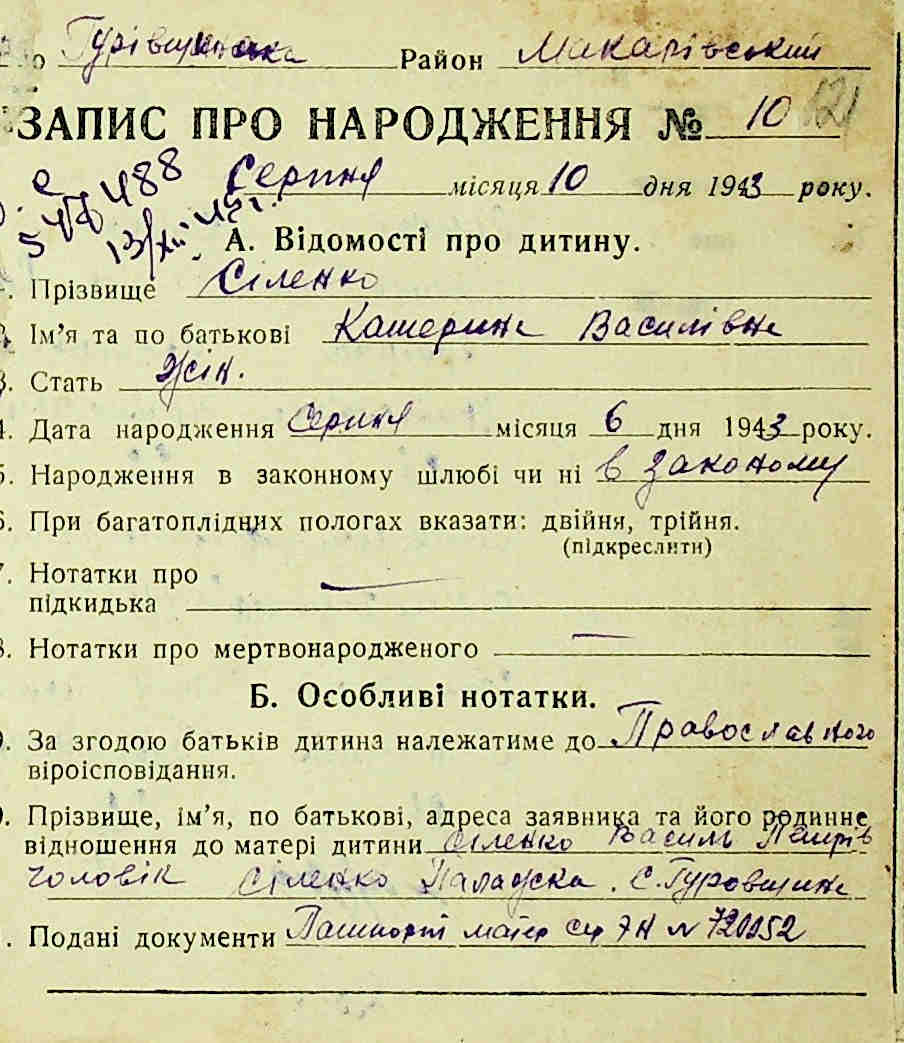 Район Макарівський
ЗАПИС ПРО НАРОДЖЕННЯ № 10 121
488 Серпня місяця 10 дня 1943 року.
А. Відомості про дитину.
Прізвище Сіленко
Ім'я та по батькові Катерина Василівна
3. Стать Жін.
Дата народження Серпня місяця 6 дня 1943 року.
Народження в законному шлюбі чи ні в законому
При багатоплідних пологах вказати: двійня, трійня.
(підкреслити)
Нотатки про
підкидька —
8. Нотатки про мертвонародженого —
Б. Особливі нотатки.
За згодою батьків дитина належатиме до Православного
віроісповідання.
Прізвище, ім'я, по батькові, адреса заявника та його родинне
відношення до матері дитини Сіленко Василь Петрів
чоловік Сіленко С. Гуровщина
Подані документи Пашпорт матер 7Н №